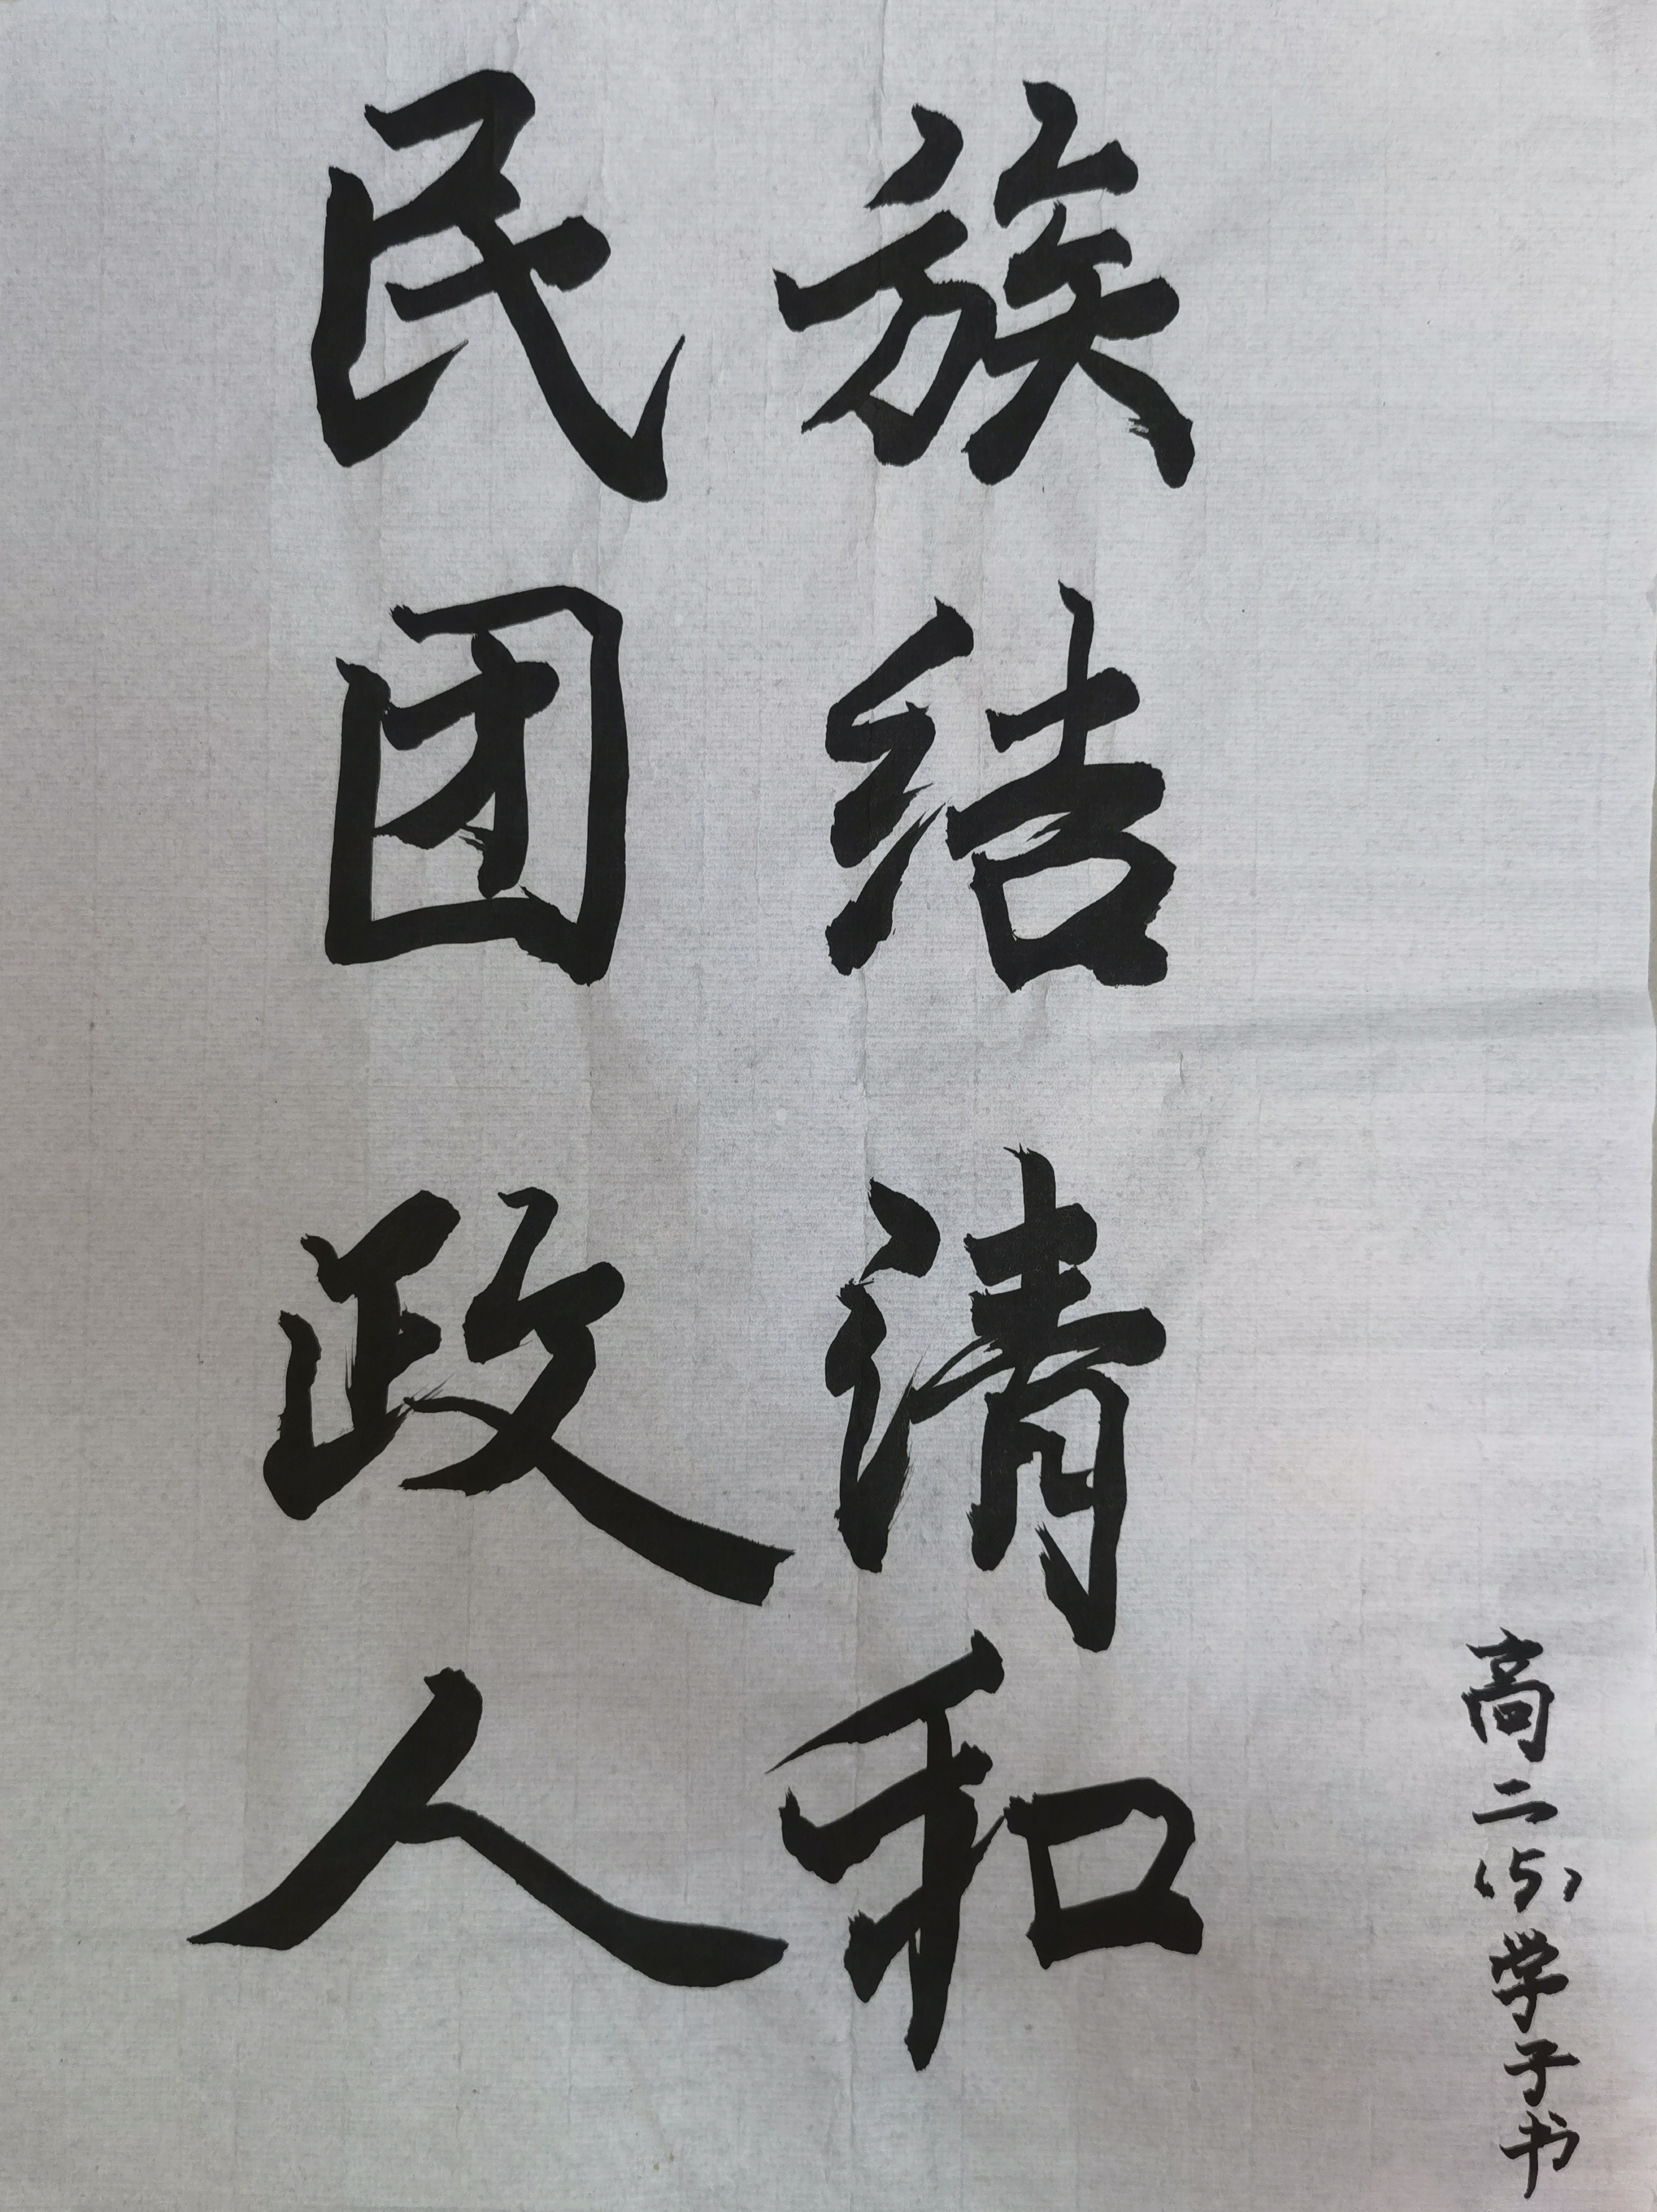 民族
团结
政清
人和
高二（5）学子书